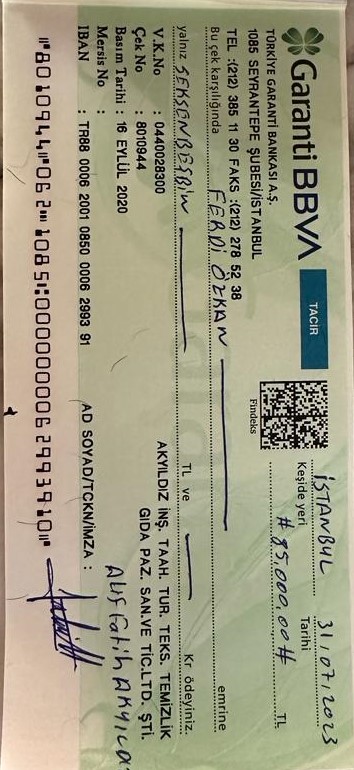 Garanti BBVA
TACİR
Findeks
İSTANBUL 31/07/2023
Keşide yeri Tarihi
# 85,000,00 # TL
TÜRKİYE GARANTİ BANKASI A.Ş.
1085 SEYRANTEPE ŞUBESİ/İSTANBUL
TEL :(212) 385 11 30 FAKS :(212) 278 52 38
Bu çek karşılığında FERDİ ÖZKAN emrine
yalnız SEKSENBEŞBİN TL ve Kr ödeyiniz.
V.K.No : 0440028300
Çek No : 8010944
Basım Tarihi : 16 EYLÜL 2020
Mersis No :
IBAN : TR88 0006 2001 0850 0006 2993 91
AKYILDIZ İNŞ. TAAH. TUR. TEKS. TEMİZLİK
GIDA PAZ. SAN.VE TİC.LTD. ŞTİ.
Fatih
AD SOYAD/TCKN/İMZA :
8010944 062 1085 0000000062993910